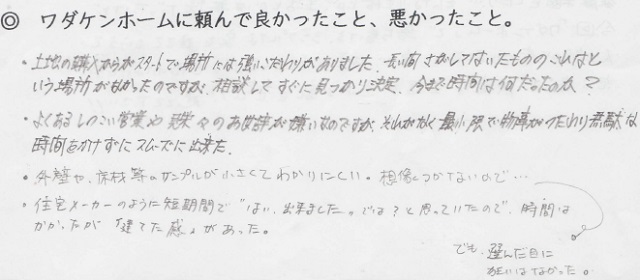 ◎ ワダケンホームに頼んで良かったこと、悪かったこと。
・土地の購入からがスタートで場所には強いこだわりがありました。長い間さがしてはいたもののこれはと
いう場所がなかったのですが、相談してすぐに見つかり決定。今まで時間は何だったのか?
・よくあるしつこい営業や 見え々のお世辞が嫌いなのですが、それがなく最小限で物事がつたわり無駄な
時間をかけずにスムーズに出来た。
・外壁や、床材等のサンプルが小さくてわかりにくい。想像しつかないので…
・住宅メーカーのように短期間で"はい、出来ました。では?と思っていたので、時間は
かかったが「建てた感」があった。
でも、選んだ目に
狂いはなかった。